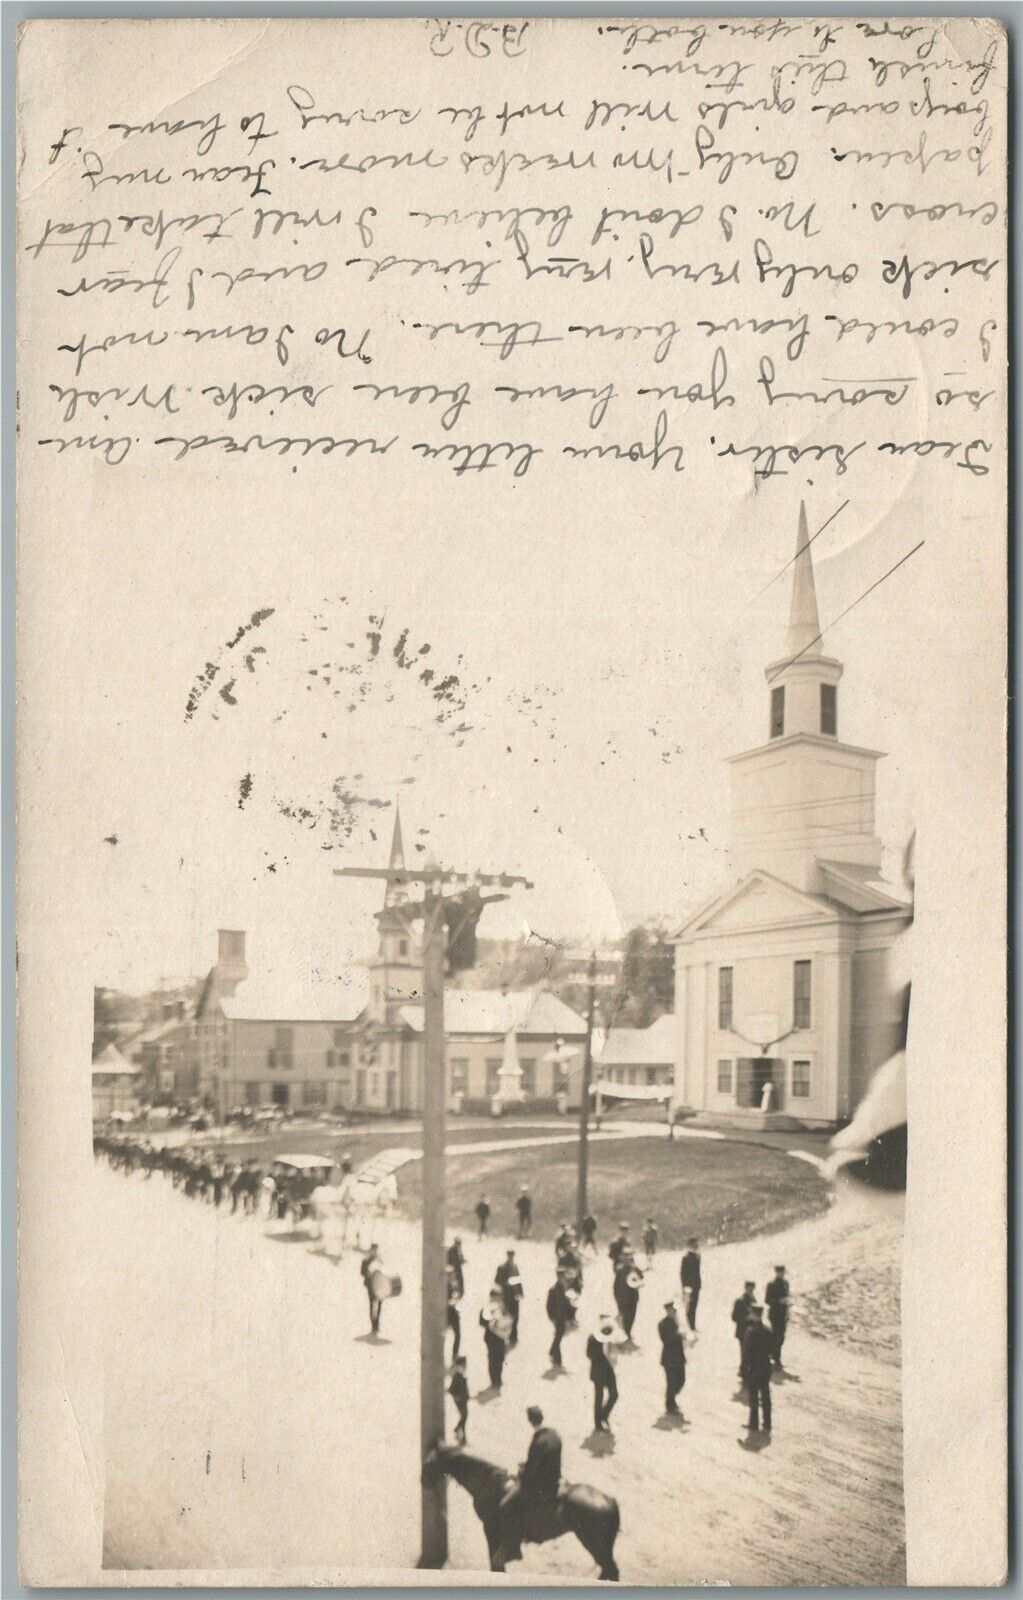 Dear Sister. Your letter recieved am
so sorry you have been sick. Wish
I could have been there. No I am not
sick only very, very tired and I fear
cross. No. I don't believe I will take that
paper. Only two weeks more.
boys and girls will not be sorry to have it
finish this time.
Love to you both.
B.D.R.